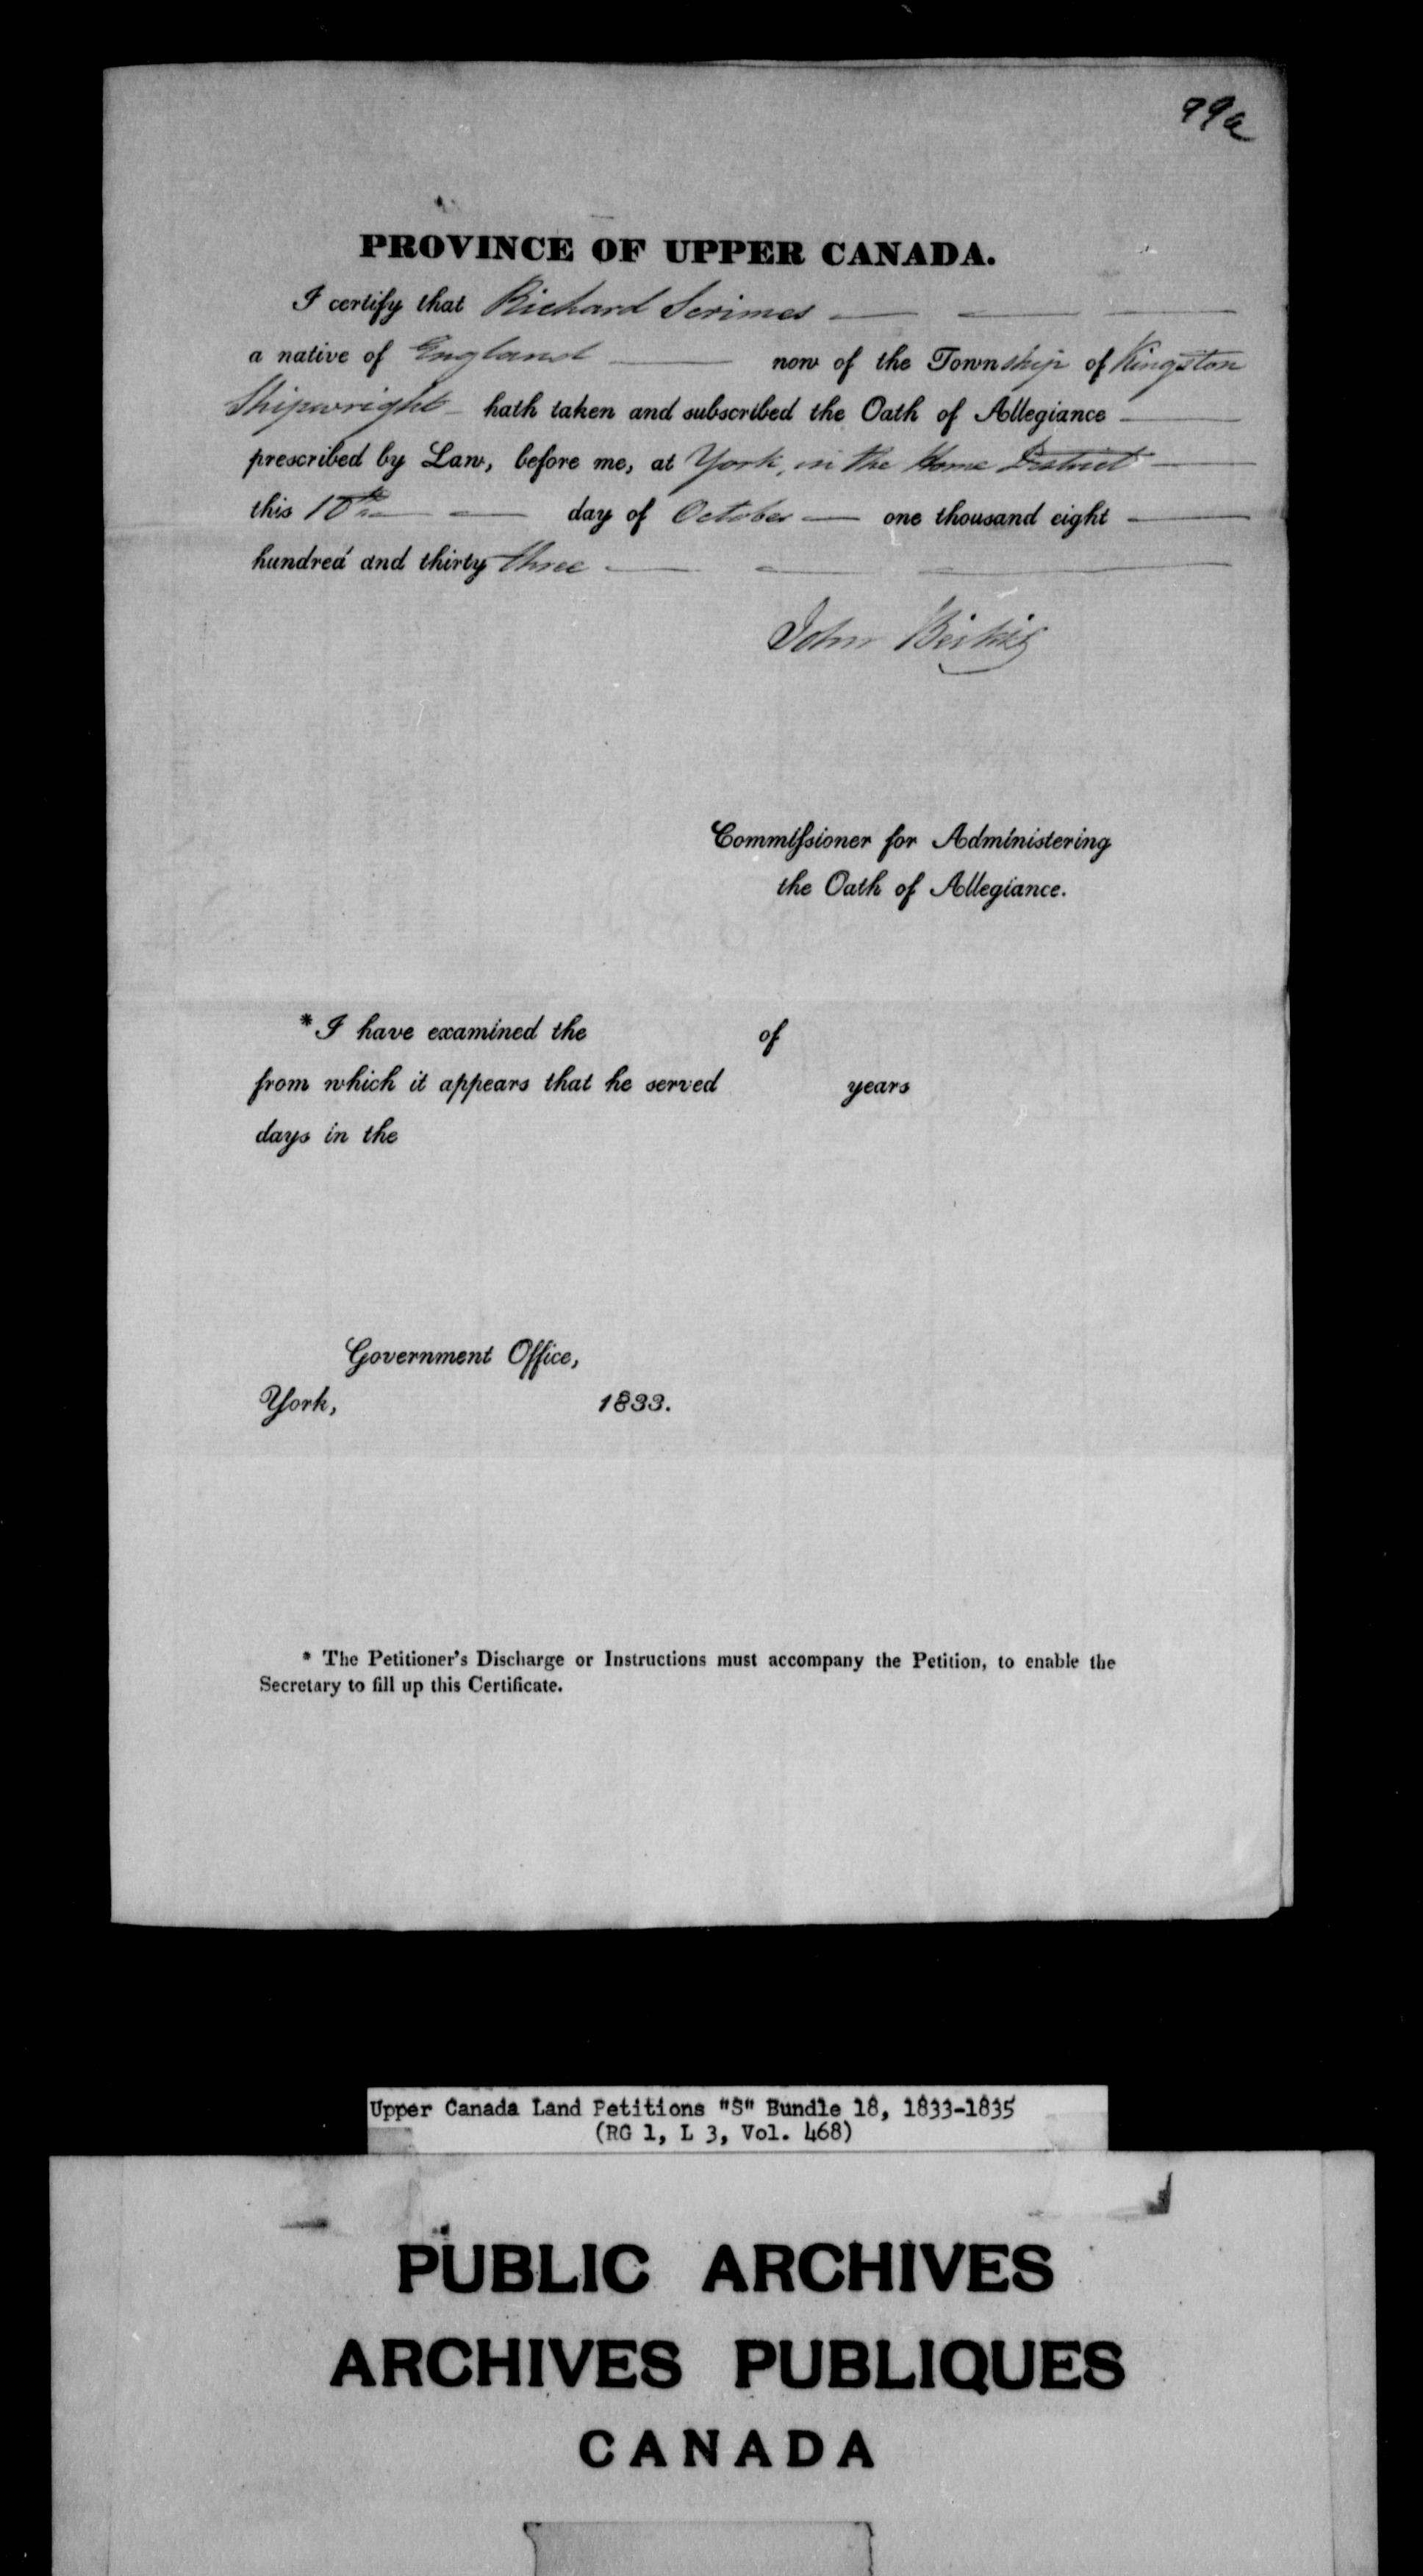 99a
PROVINCE OF UPPER CANADA.
I certify that Richard Scrimes
a native of England now of the Township of Kingston
Shipwright hath taken and subscribed the Oath of Allegiance
prescribed by Law, before me, at York, in the Home District
this 10th day of October one thousand eight
hundred and thirty three
John Beikie
Commissioner for Administering
the Oath of Allegiance.
* I have examined the of
from which it appears that he served years
days in the
Government Office,
York, 1833.
* The Petitioner's Discharge or Instructions must accompany the Petition, to enable the
Secretary to fill up this Certificate.
Upper Canada Land Petitions "S" Bundle 18, 1833-1835
(RG 1, L 3, Vol. 468)
PUBLIC ARCHIVES
ARCHIVES PUBLIQUES
CANADA